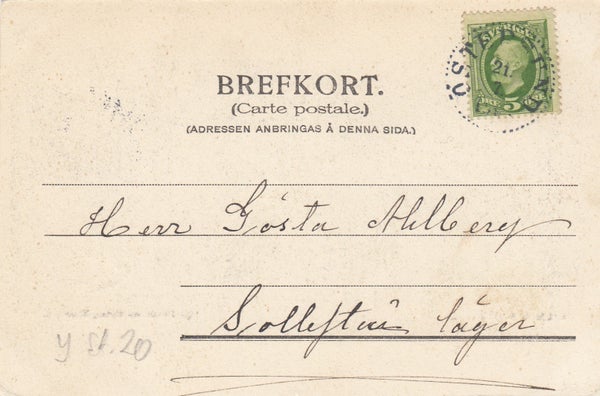 BREFKORT.
(Carte postale.)
(ADRESSEN ANBRINGAS Å DENNA SIDA.)
SVERIGE
ÖSTERSUND
21
7
5
Herr Gösta Ahlberg
Sollefteå läger
y st. 20